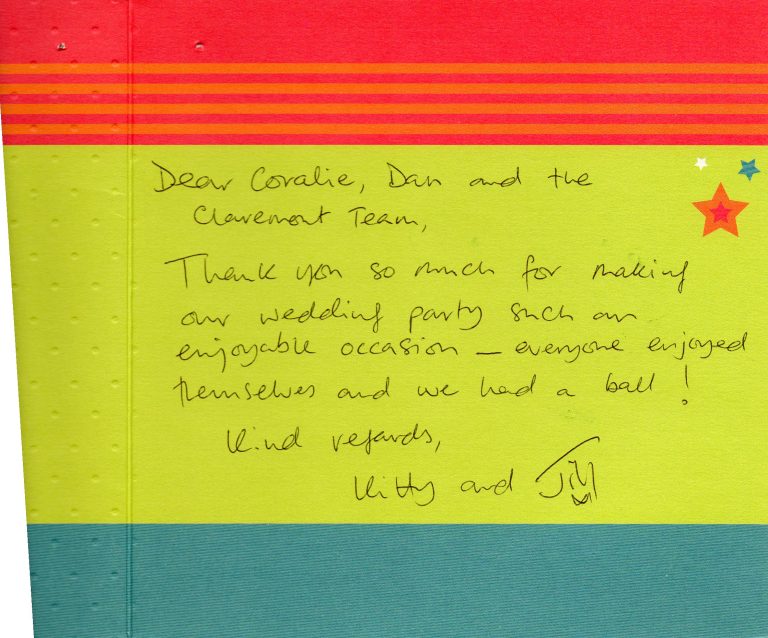 Dear Coralie, Dan and the
Claremont Team,
Thank you so much for making
our wedding party such an
enjoyable occasion – everyone enjoyed
themselves and we had a ball!
Kind regards,
Kitty and Jill